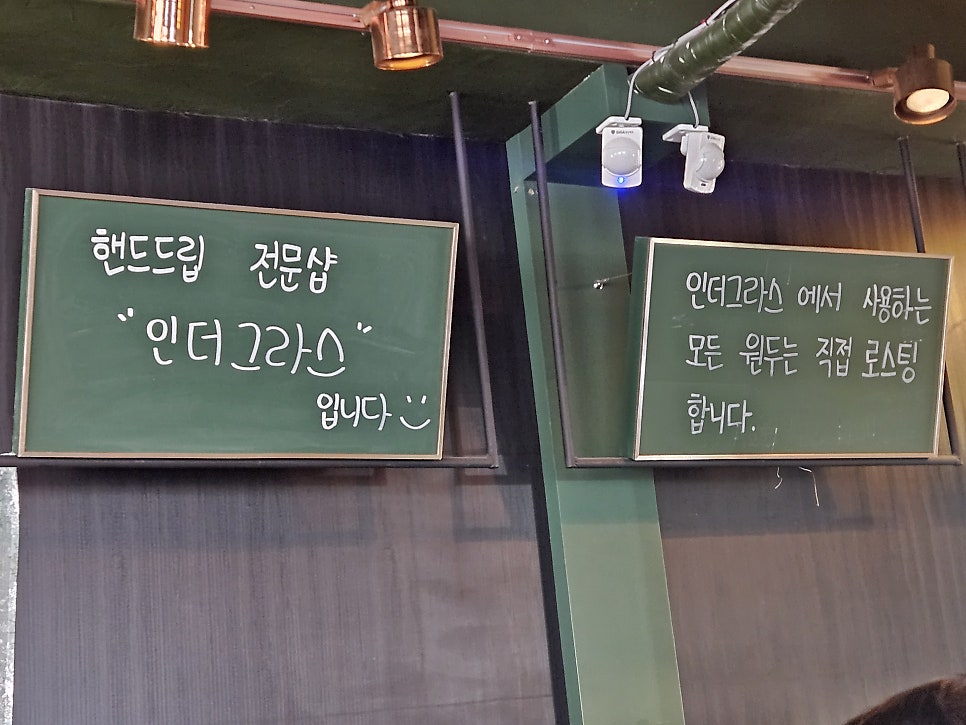 핸드드립 전문샵
"인더그라스"
입니다
인더그라스 에서 사용하는
모든 원두는 직접 로스팅
합니다.